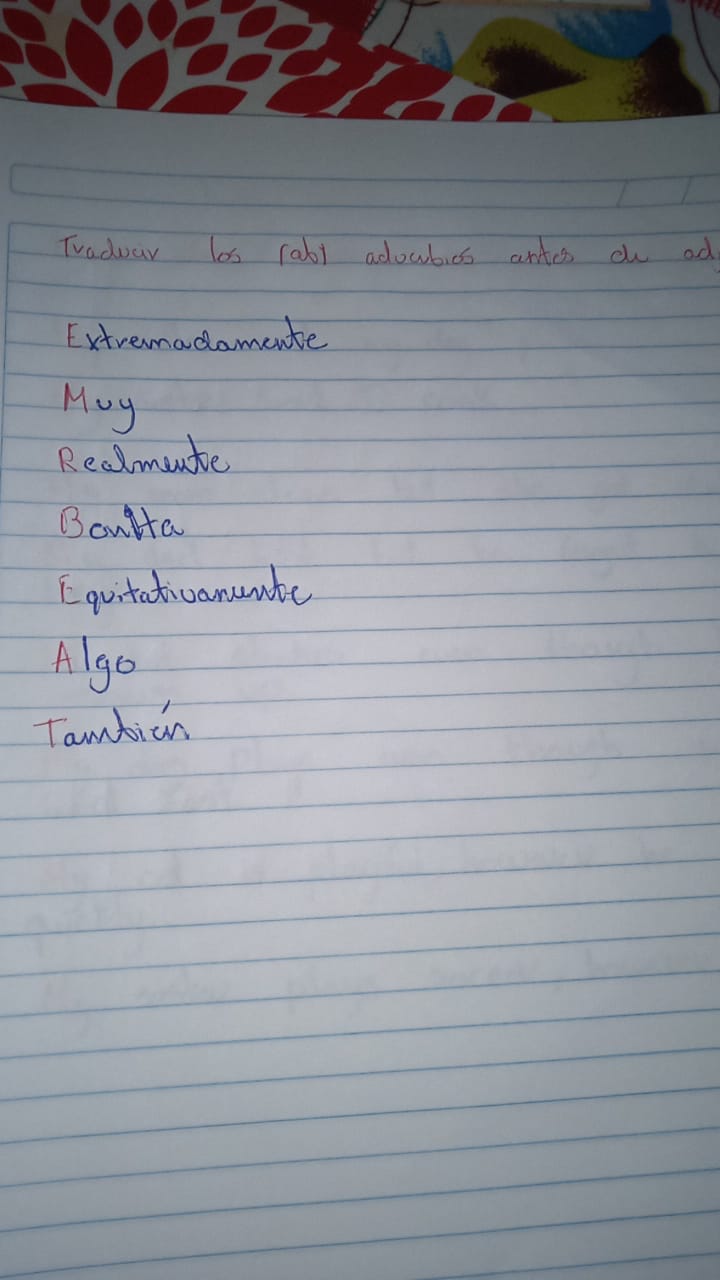 Traducir los (ab) adverbios antes de ad
Extremadamente
Muy
Realmente
Bonita
Equitativamente
Algo
También